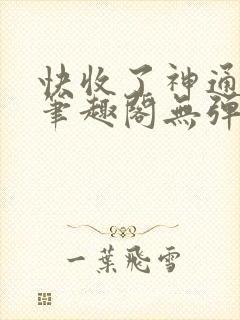 快收了神通
笔趣阁無弹
一葉飛雪